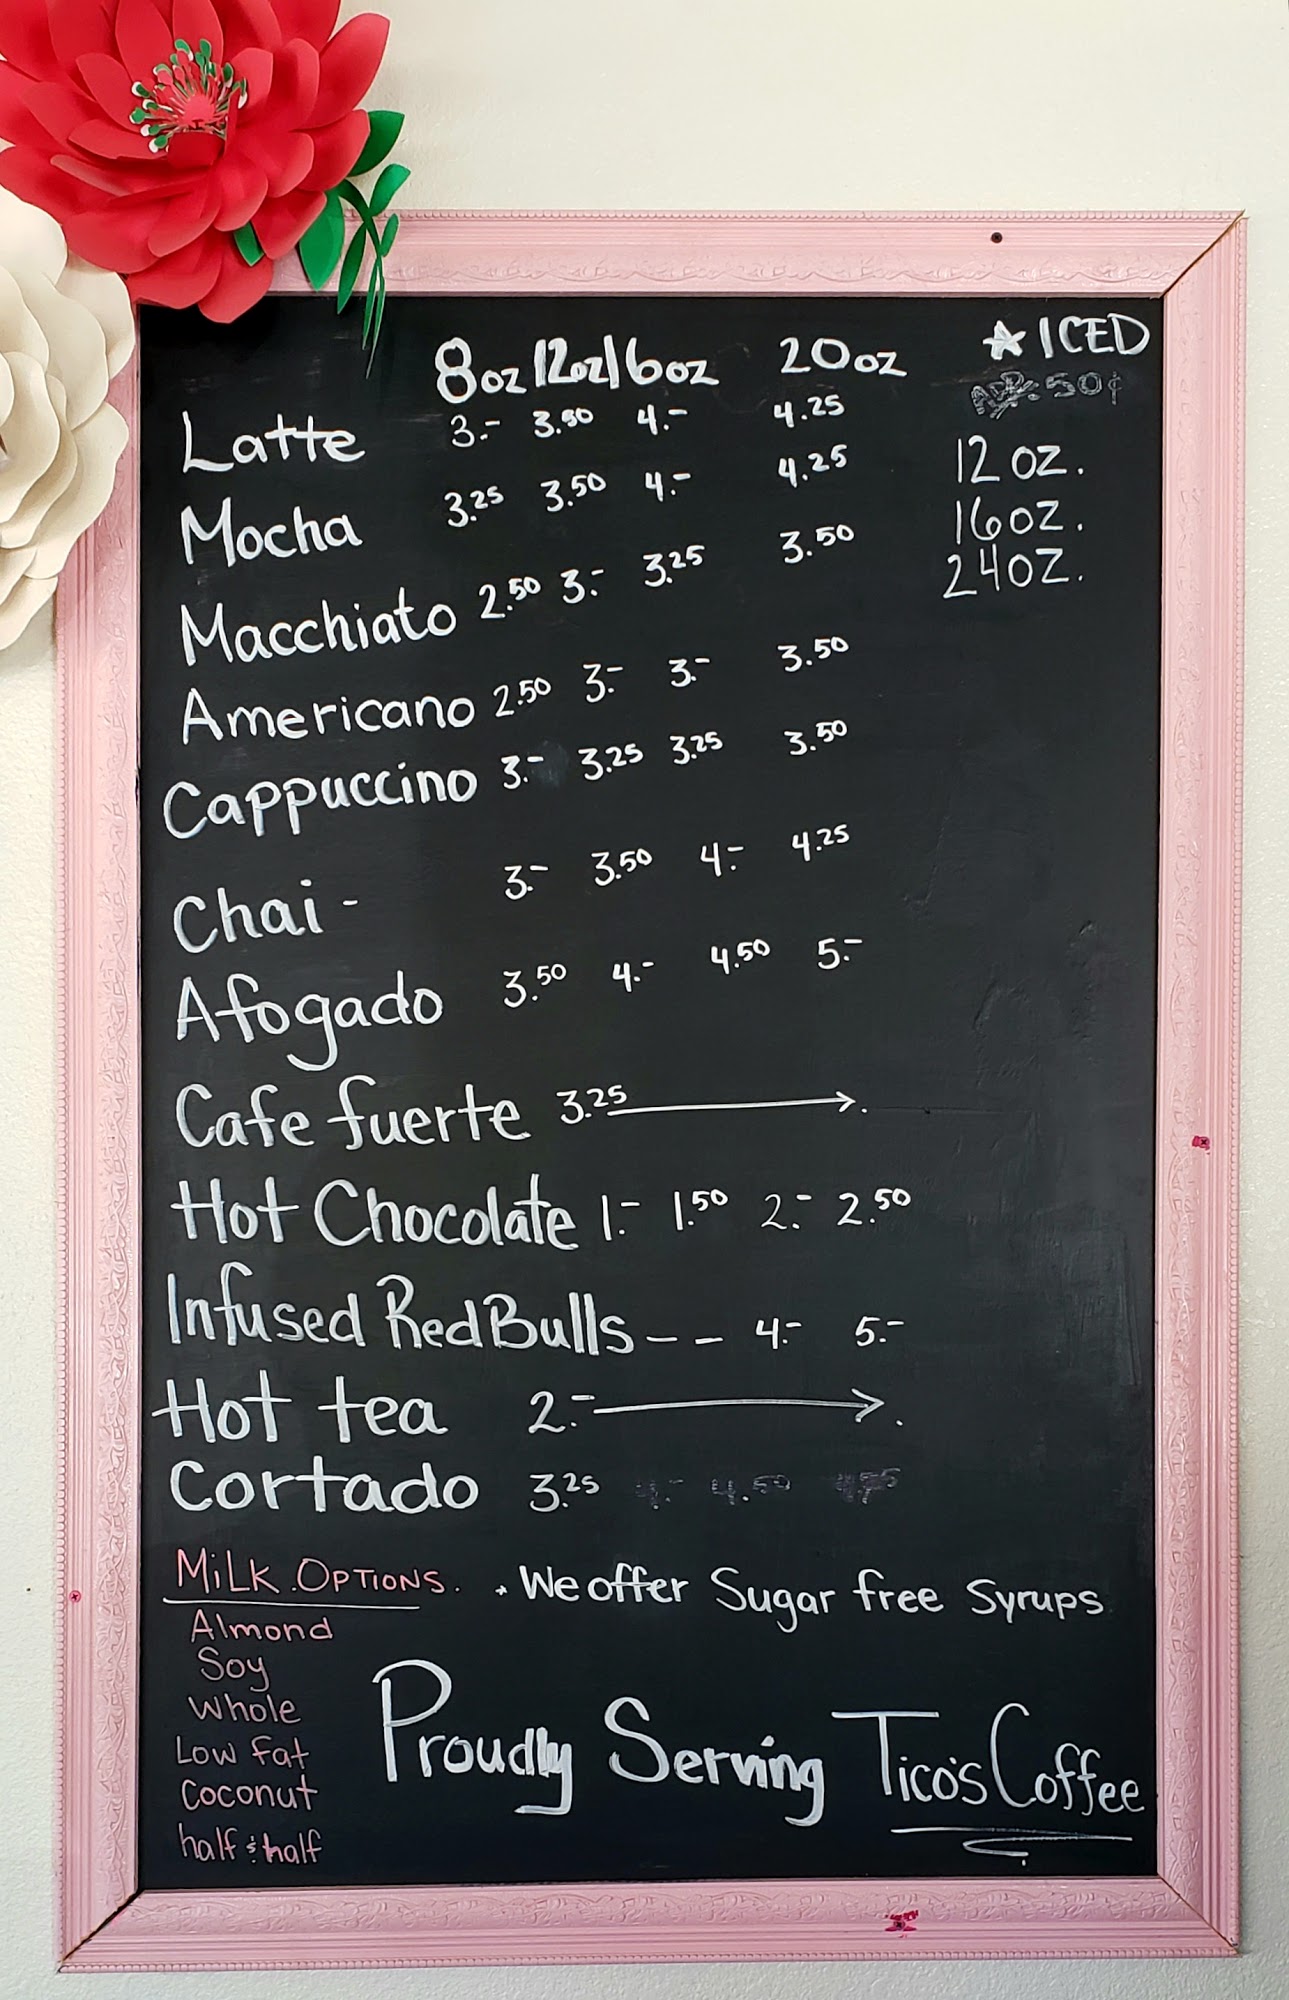 8oz 12oz 16oz 20oz ★ ICED
ADD .50¢
Latte 3.- 3.50 4.- 4.25
12 oz.
Mocha 3.25 3.50 4.- 4.25
16oz.
24oz.
Macchiato 2.50 3.- 3.25 3.50
Americano 2.50 3.- 3.- 3.50
Cappuccino 3.- 3.25 3.25 3.50
Chai - 3.- 3.50 4.- 4.25
Afogado 3.50 4.- 4.50 5.-
Cafe fuerte 3.25 →.
Hot Chocolate 1.- 1.50 2.- 2.50
Infused RedBulls - - 4.- 5.-
Hot tea 2.- →.
Cortado 3.25 4.- 4.50
MiLK OPTIONS. * We offer Sugar free Syrups
Almond
Soy
Whole
Low fat
Coconut
half & half
Proudly Serving Tico's Coffee